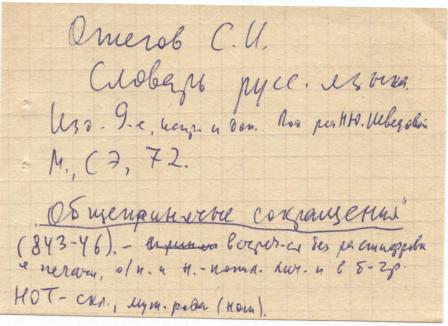 Ожегов С.И.
Словарь русс. языка.
Изд. 9-е, испр. и доп. Под ред. Н.Ю. Шведовой
М., СЭ, 72.
"Общепринятые сокращения"
(843-46). - встреч-ся без расшифровки
в печати, о/п. и н.-попул. лич. и в б-гр.
НОТ - скл., муж. рода (нот).